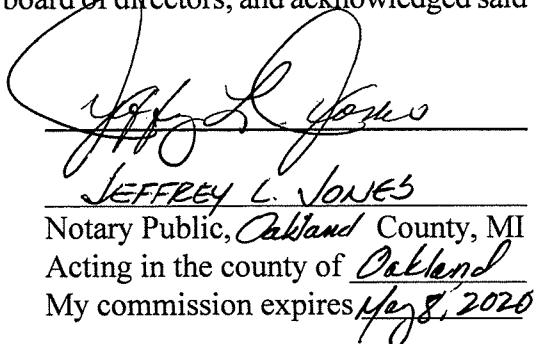 board of directors, and acknowledged said
Jeffrey L. Jones
JEFFREY L. JONES
Notary Public, Oakland County, MI
Acting in the county of Oakland
My commission expires May 8, 2020